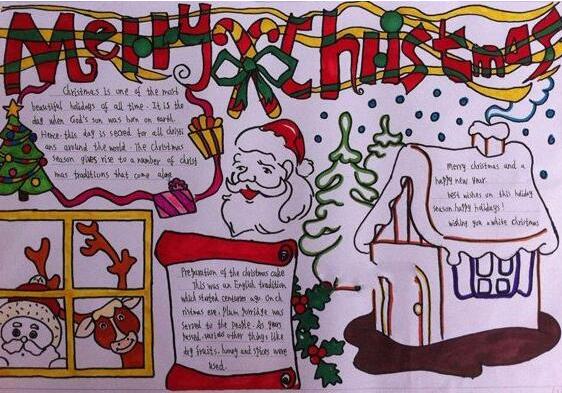 Merry Christmas
Christmas is one of the most
beautiful holidays of all time. It is the
day when God's son was born on earth.
Hence this day is sacred for all christi
ans around the world. The Christmas
season gives rise to a number of christ
mas traditions that come alone
Merry christmas and a
happy new year.
best wishes on this holiday
season. happy holidays!
wishing you a white christmas
Preparation of the christmas cake
This was an English tradition
which started centuries ago. On ch
ristmas eve, Plum porridge was
served to the people. As years
passed, various other things like
day fruits, honey and spices were
used.